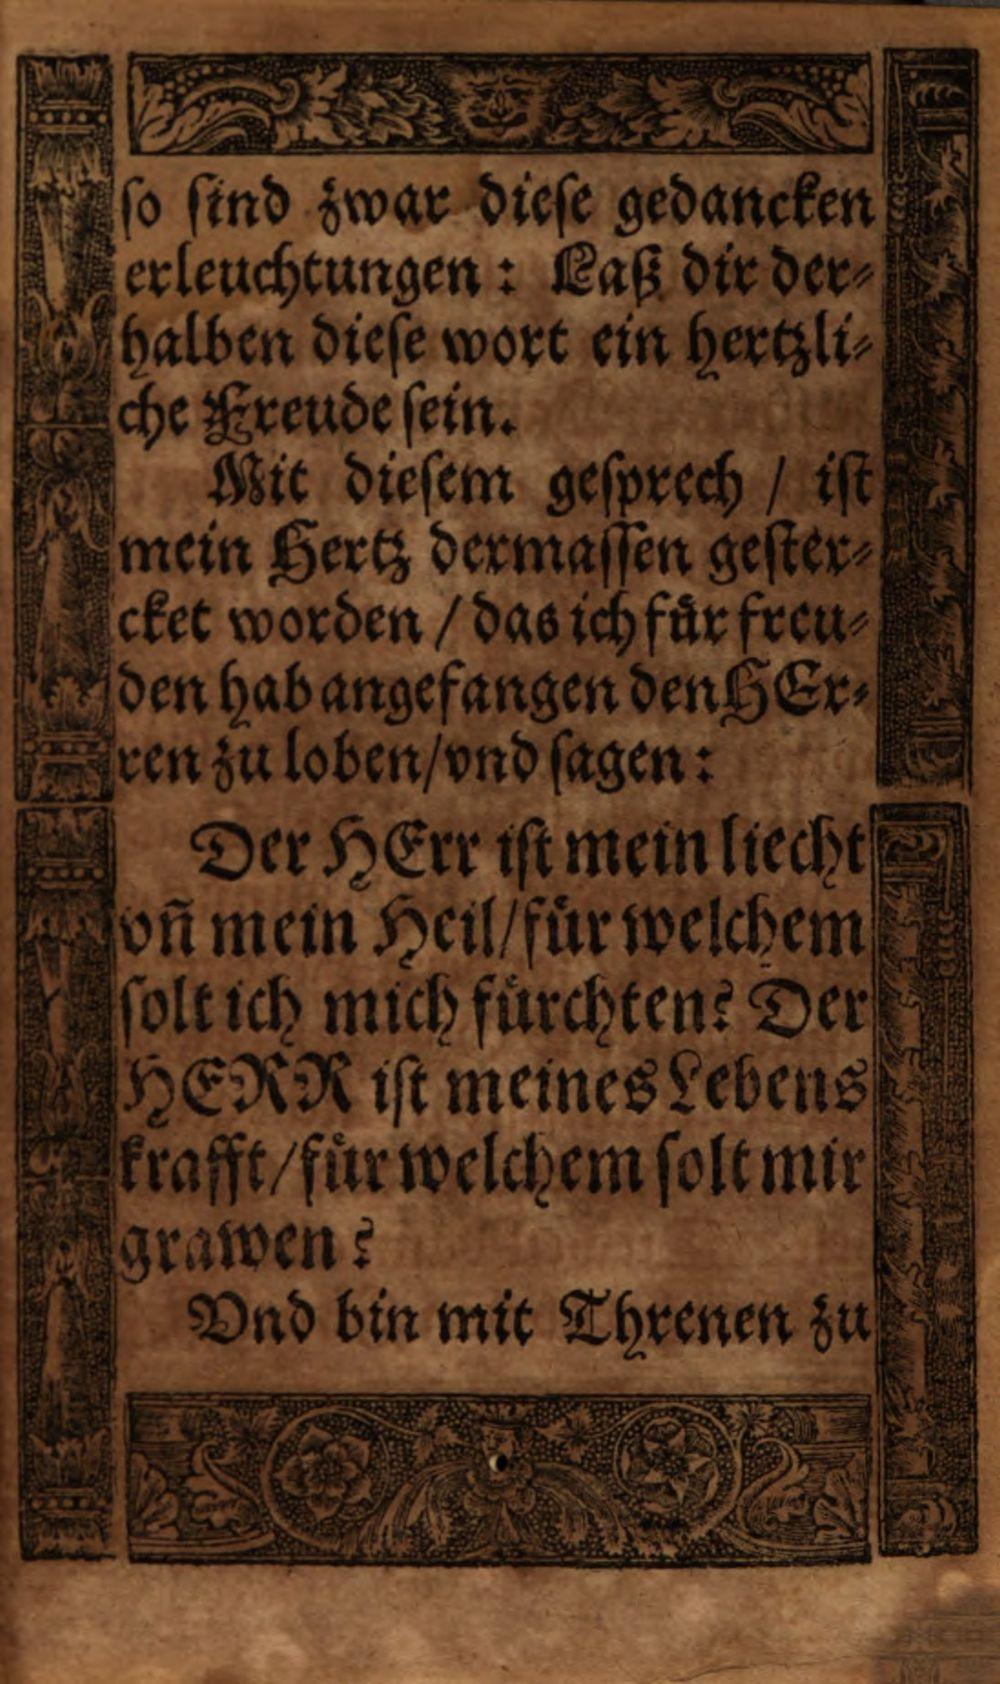 so sind zwar diese gedancken
erleuchtungen : Laß dir der⸗
halben diese wort ein hertzli⸗
che Freude sein.
Mit diesem gesprech / ist
mein Hertz dermassen gester⸗
cket worden / das ich fuͤr freu⸗
den hab angefangen den HEr⸗
ren zu loben/vnd sagen :
Der HErr ist mein liecht
vñ mein Heil/fuͤr welchem
solt ich mich fuͤrchten? Der
HERR ist meines Lebens
krafft/fuͤr welchem solt mir
grawen?
Vnd bin mit Threnen zu